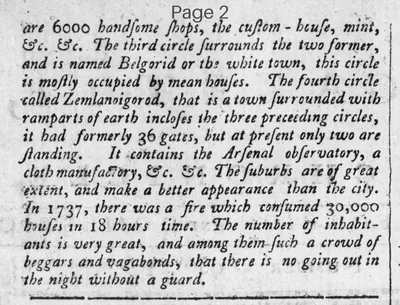 Page 2
are 6000 handſome ſhops, the cuſtom-houſe, mint,
&c. &c. The third circle ſurrounds the two former,
and is named Belgorid or the white town, this circle
is moſtly occupied by mean houſes. The fourth circle
called Zemlanoigorod, that is a town ſurrounded with
ramparts of earth incloſes the three preceeding circles,
it had formerly 36 gates, but at preſent only two are
ſtanding. It contains the Arſenal obſervatory, a
cloth manufactory, &c. &c. The ſuburbs are of great
extent, and make a better appearance than the city.
In 1737, there was a fire which conſumed 30,000
houſes in 18 hours time. The number of inhabit-
ants is very great, and among them ſuch a crowd of
beggars and vagabonds, that there is no going out in
the night without a guard.